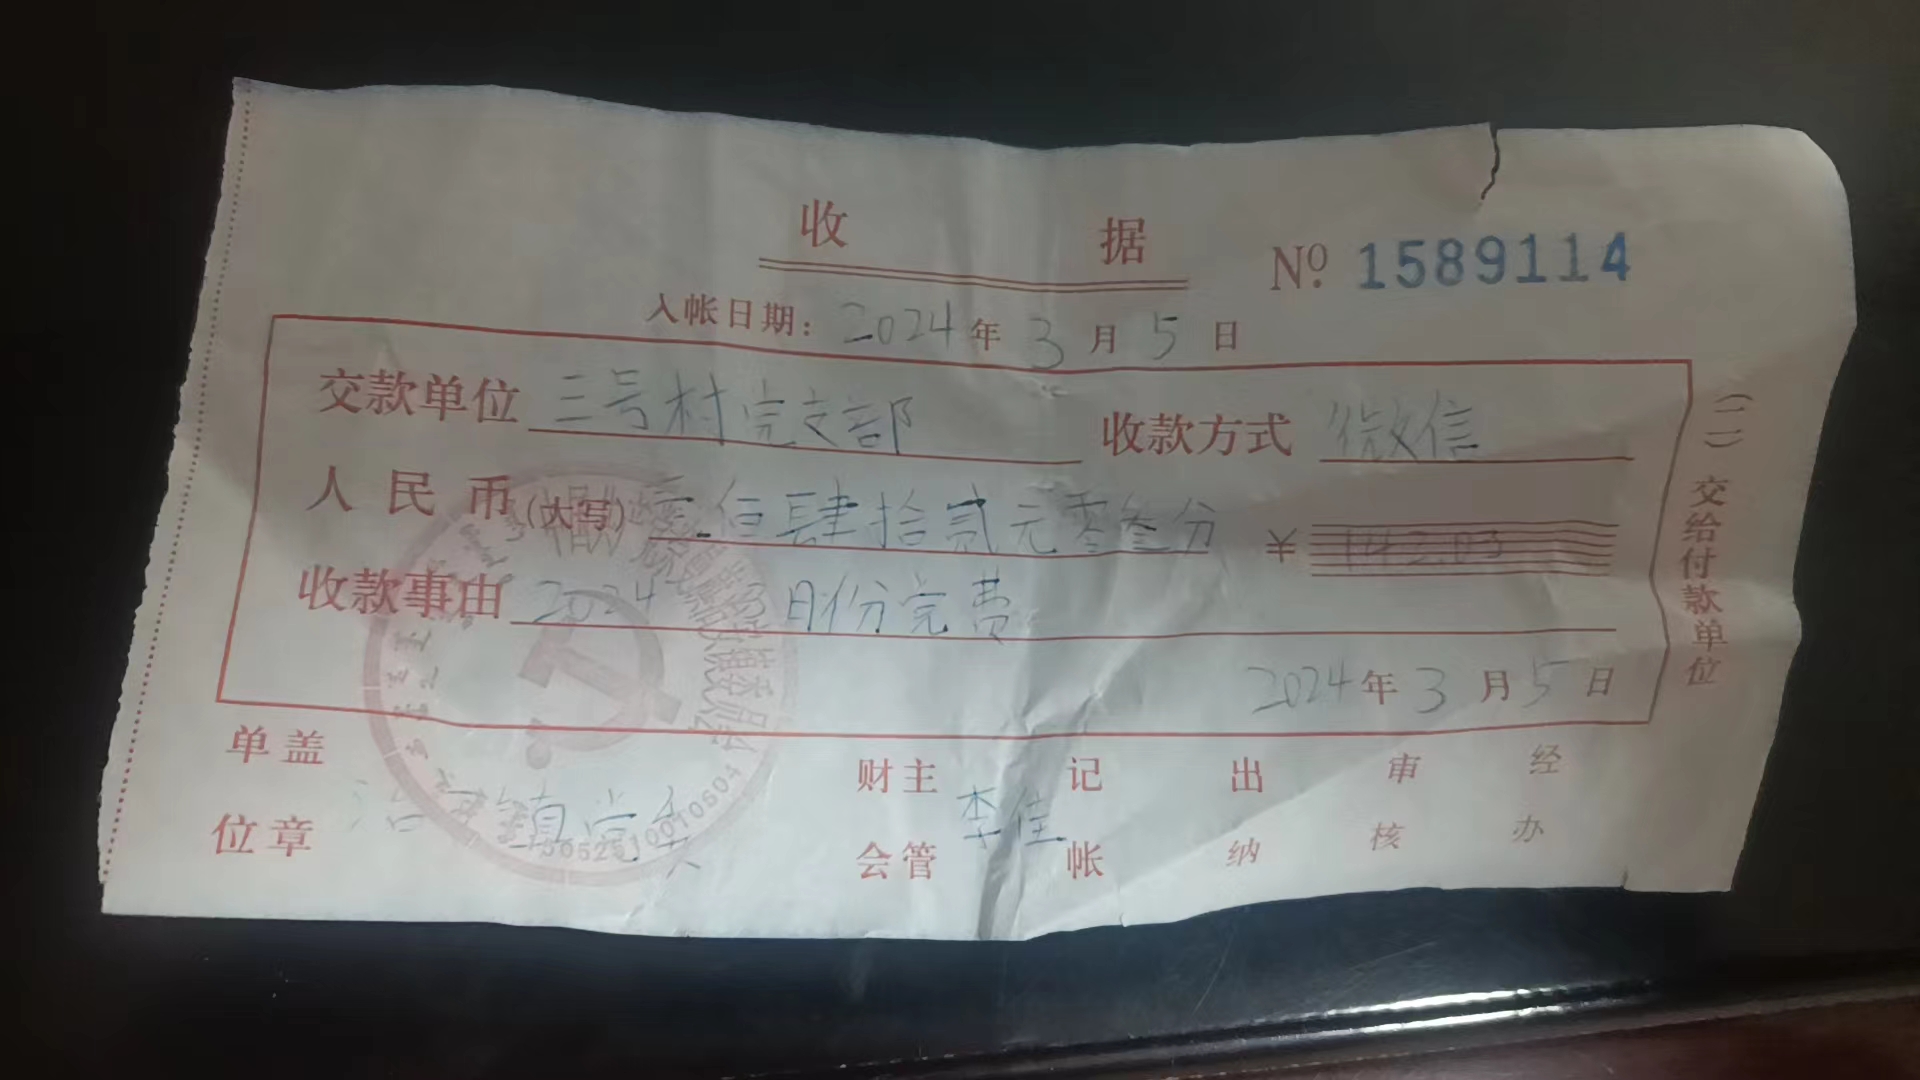 收 据
№ 1589114
入帐日期: 2024 年 3 月 5 日
交款单位 三号村党支部 收款方式 微信
人民币(大写) 壹佰肆拾贰元零叁分 ¥ 142.03
收款事由 2024 月份党费
2024 年 3 月 5 日
(二)交给付款单位
单位盖章 治 镇党委 财会主管 李佳 记帐 出纳 审核 经办